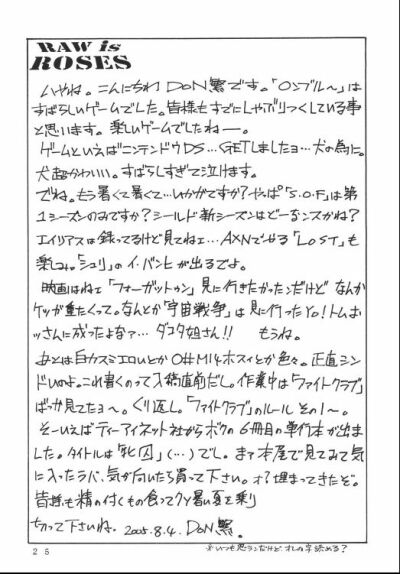 RAW is
ROSES
ハヤね。こんにちわ DoN繁です。「ロンブル〜」は
すばらしいゲームでした。皆様もすでにしゃぶりつくしている事
と思います。楽しいゲームでしたねー。
ゲームといえばニンテンドウDS…GETしましたヨ…犬の為に。
犬超かわいい。すばらしすぎて泣けます。
でね。もう暑くて暑くて…いかがですか?やっぱ「S.O.F」は第
1シーズンのみですか?シールド新シーズンはどーなるンスかね?
エイリアスは録ってるけど見てねェ…AXNでやる「LOST」も
楽しみ。「シュリ」のイ・バンヒが出るでよ。
映画はねェ「フォーガットゥン」見に行きたかったンだけど なんか
ケツが重たくって。なんとか「宇宙戦争」は見に行ったYo!トムお
ッさんに成ったよなァ…ダコタ姐さん!! もうね。
あとは白カスミエロいとか O#M14ホスィとか色々。正直シン
ドいのよ。これ書くのって入稿直前だし。作業中は「ファイトクラブ」
ばっか見てたヨ〜。くり返し。「ファイトクラブ」のルール その1〜。
そーいえばティーアイネット社からボクの6冊目の単行本が出ま
した。タイトルは「牝囚」(…)でし。まァ本屋で見てみて気
に入ったラバ、気が向いたら買って下さい。オ?埋まってきたぞ。
皆様も精の付くもの食ってクソ暑い夏を乗り
切って下さいね。2005.8.4. DoN繁.
※いつも思うンだけど、オレの字読める?
25